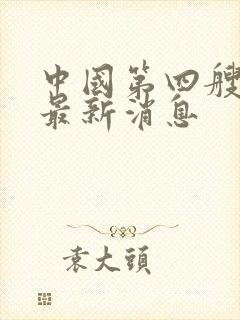 中國第四艘
最新消息
袁大頭